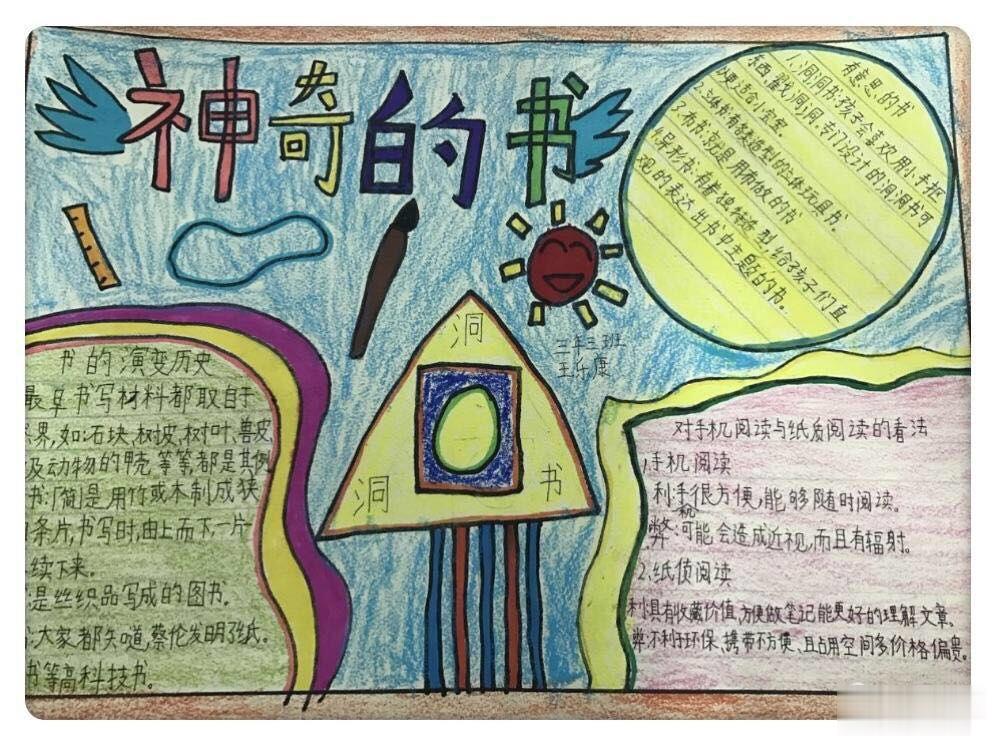 神奇的书
有意思的书
1.洞洞书:孩子会喜欢用小手抠
东西,戳戳洞洞,专门设计的洞洞书可
以更适合小宝宝。
2.立体书:有着造型的立体玩具书。
3.布书:就是用布做的书
4.异形书:有着独特造型,给孩子们直
观的表达出书中主题的书。
洞
洞
书
三年三班
王乐康
书的演变历史
最早书写材料都取自于
界,如:石块、树坡、树叶、兽皮、
及动物的甲壳等等,都是其例
书:「简」是用竹或木制成狭
条片,书写时,由上而下一片
续下来。
是丝织品写成的图书。
:大家都知道,蔡伦发明了纸。
书等高科技书。
对手机阅读与纸质阅读的看法
1.手机阅读
利:手机很方便,能够随时阅读。
弊:可能会造成近视,而且有辐射。
2、纸侦阅读
利:具有收藏价值,方便做笔记能更好的理解文章。
弊:不利于环保、携带不方便、且占用空间多,价格偏贵。